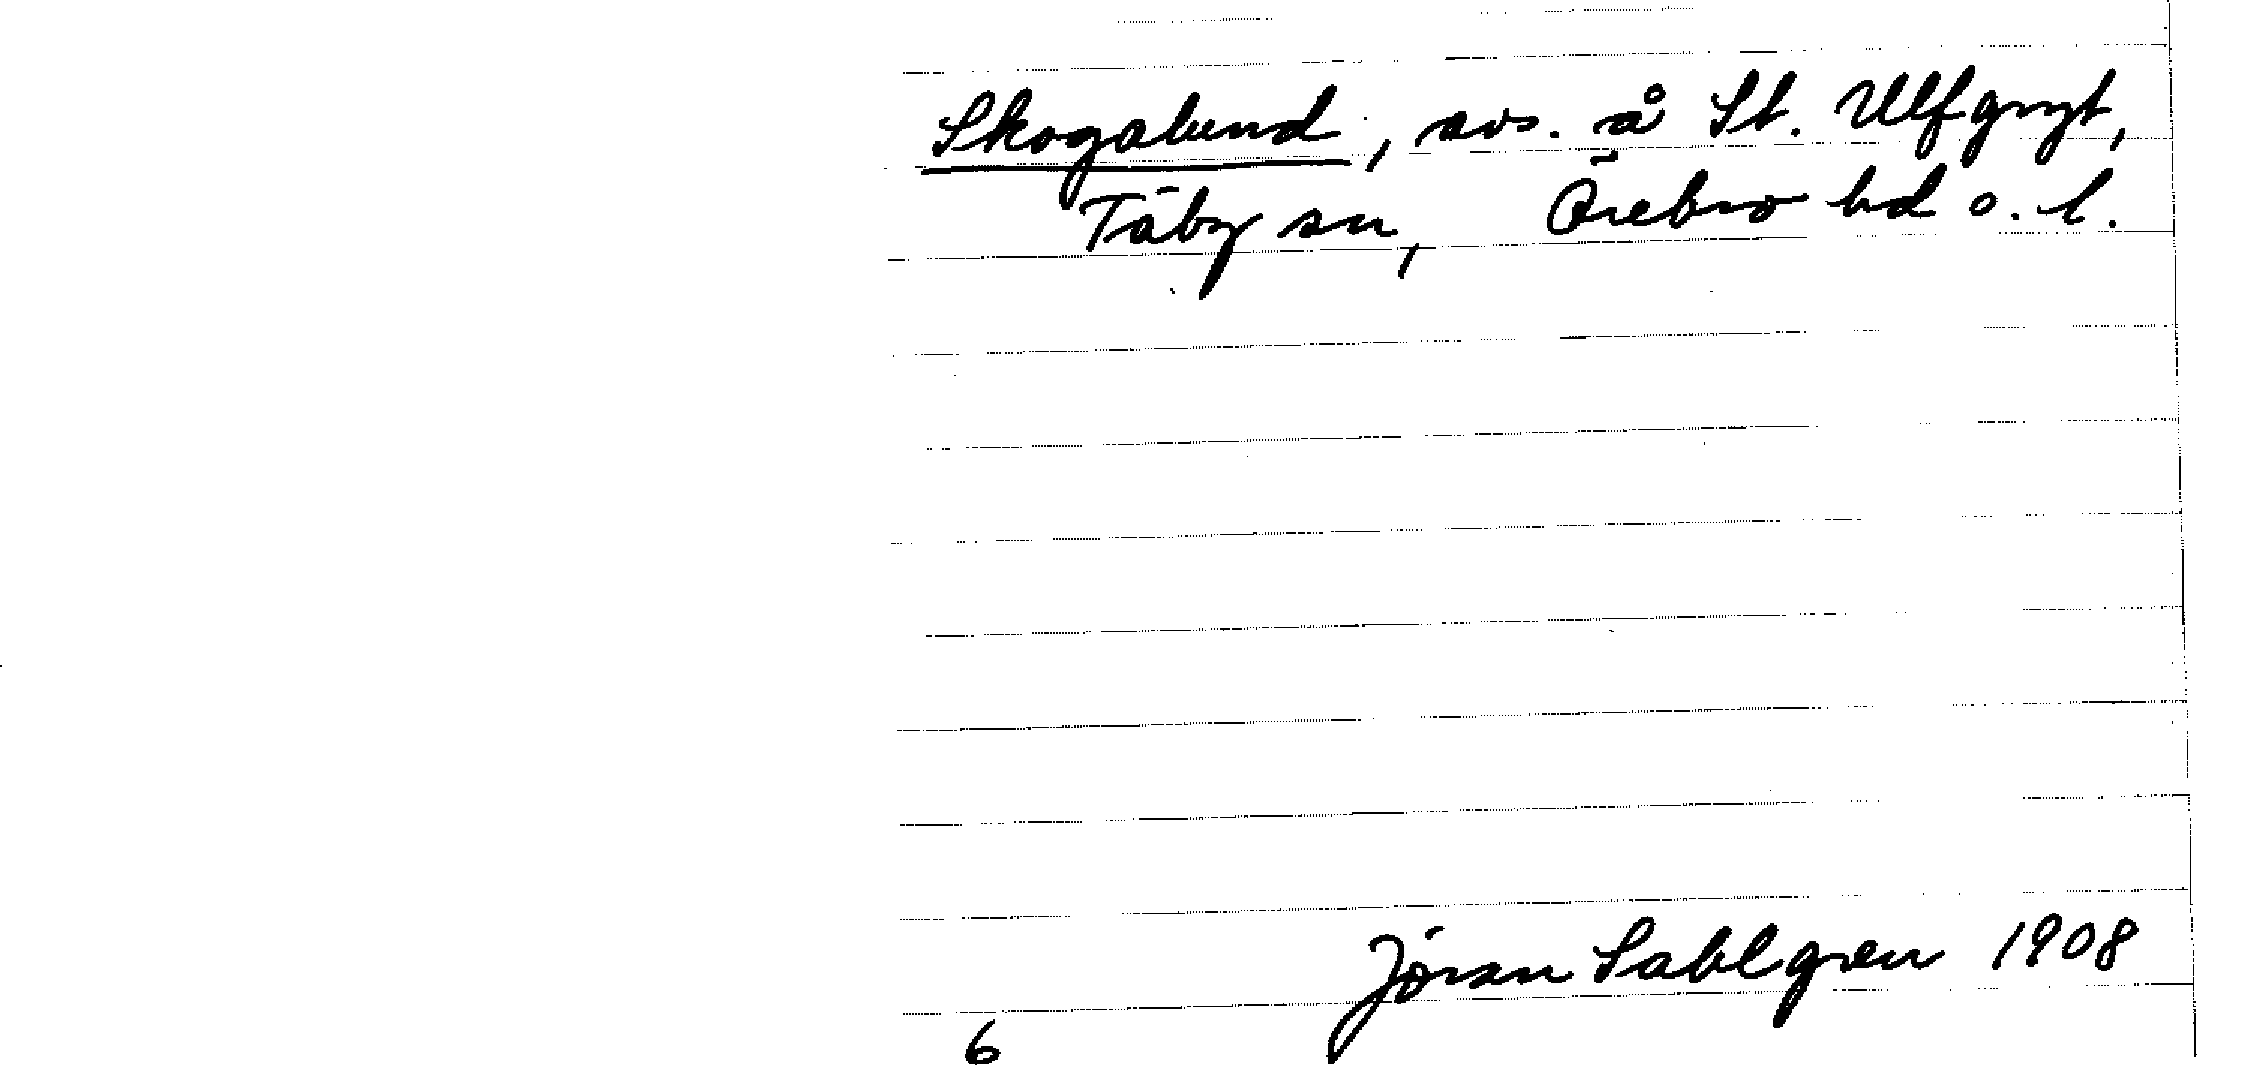 Skogalund, avs. å St. Ulfgryt,
Täby sn, Örebro hd o. l.
Jöran Sahlgren 1908
6